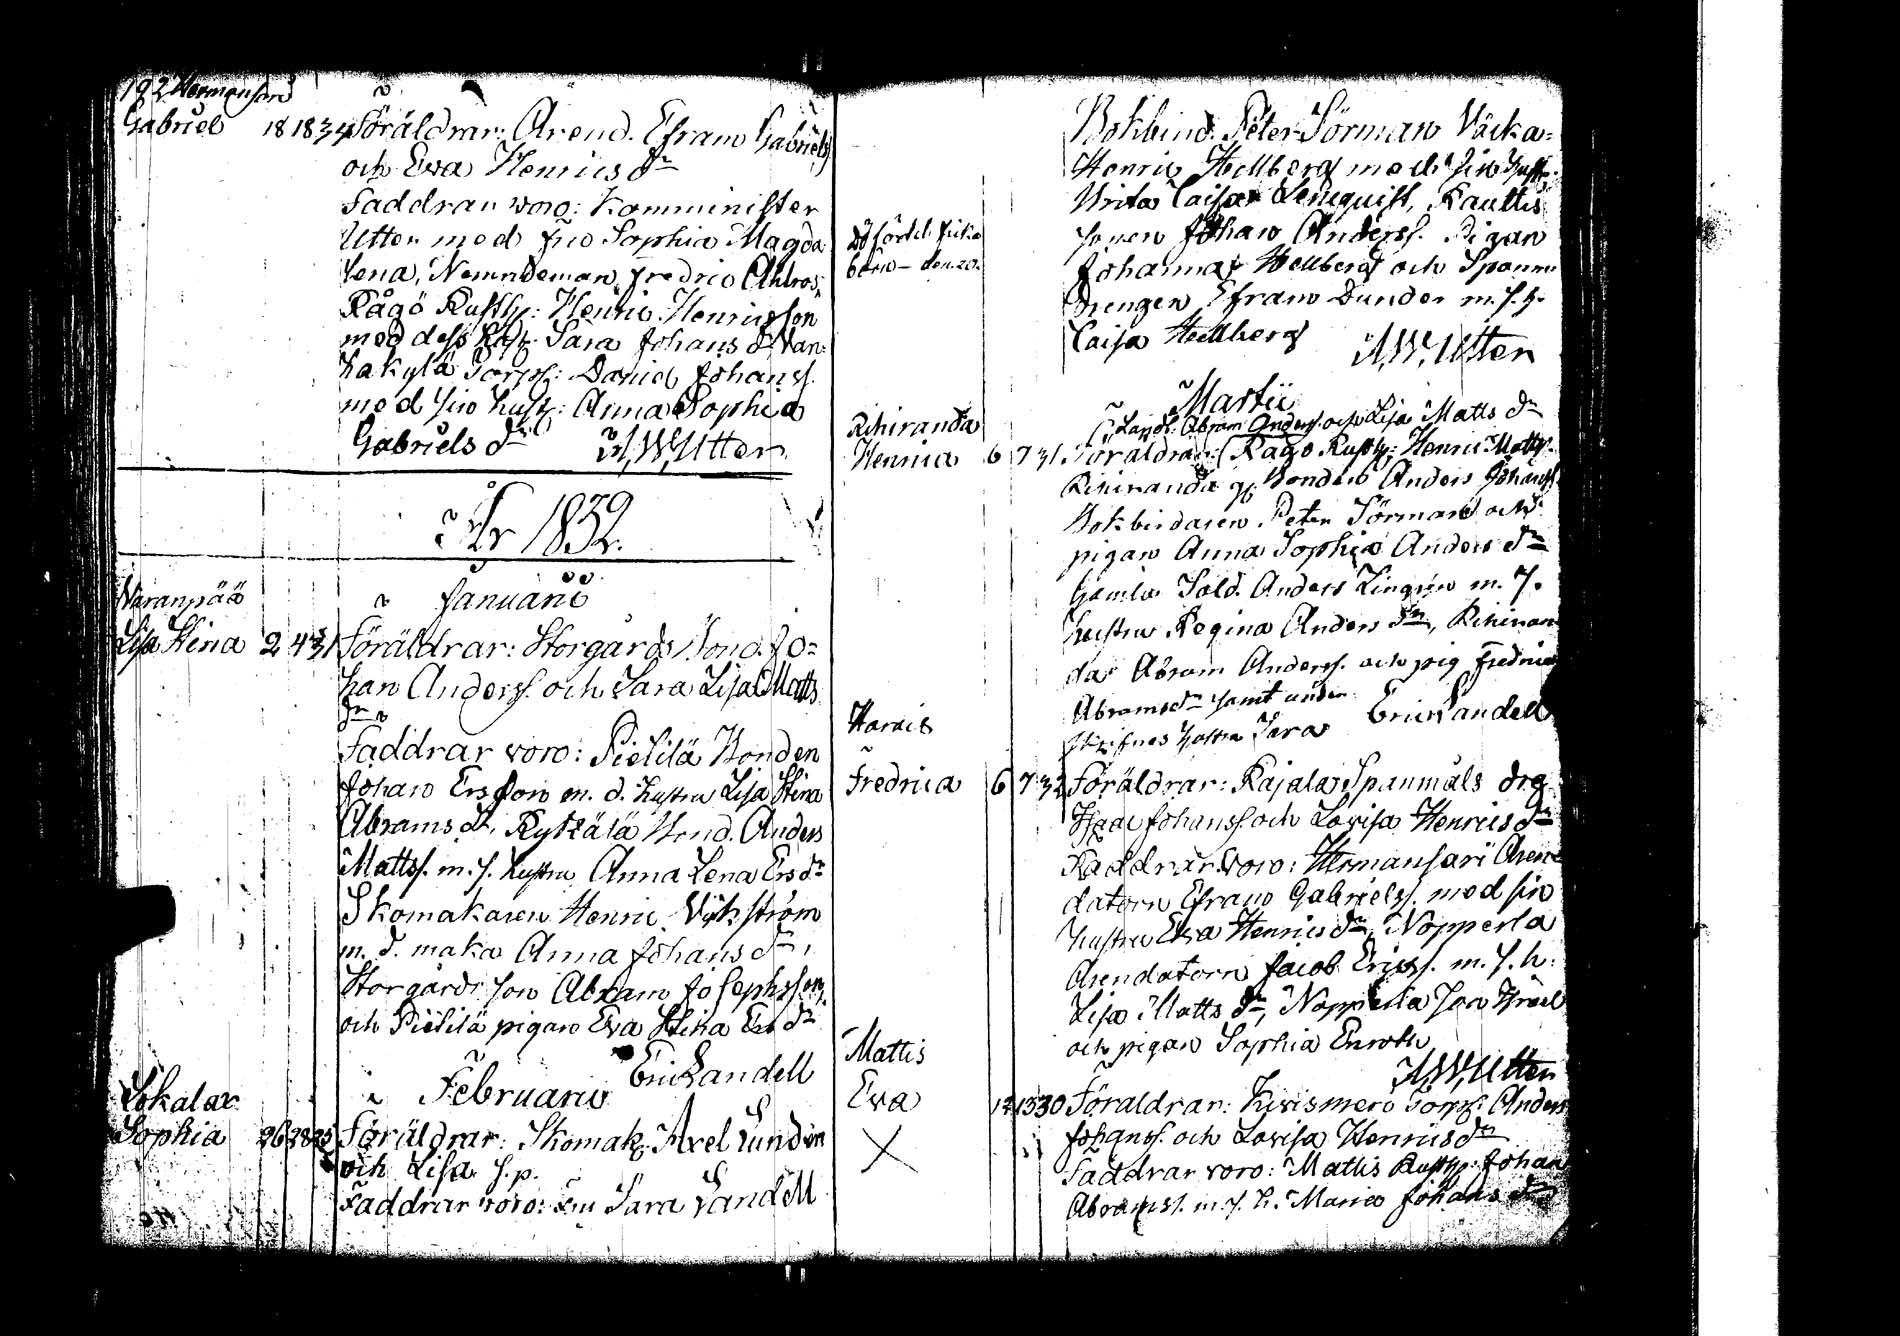 192 Hermansari
Gabriel 18 18 34 Föräldrar: Arend. Efraim Gabriels.
och Eva Henricsdr
Faddrar voro: Komminister
Utter med fru Sophia Magda
lena, Nemndeman Fredric Ahlros,
Rågö Rusth: Henric Henricsson
med dess hust. Sara Johansdr Van:
hakylä Torp: Daniel Johanss.
med sin hust: Anna Sophia
Gabrielsdr A.W. Utter
År 1832.
Januarii
Varanpää
Lisa Stina 2 4 31 Föräldrar: Storgårds Bond. Jo=
han Anderss. och Sara Lisa Matts
dr
Faddrar voro: Pietilä Bonden
Johan Ersson m. d. hustru Lisa Stina
Abramsdr, Rytsälä Bond. Anders
Mattss. m. s. hustru Anna Lena Ersdr
Skomakaren Henric Vikström
m. d. maka Anna Johansdr,
Storgårds son Abram Josephsson,
och Pietilä pigan Eva Stina Ersdr
Eric Landell
Februarii
Lokalax
Sophia 26 28 25 Föräldrar: Skomak. Axel Lundén
och Lisa s.p.
Faddrar voro: Fru Sara Landell
Bokbind. Peter Törman Väcka=
Henric Hellberg med sin hust.
Brita Caisa Lenequist, Kauttis
sonen Johan Anderss. Pigan
Johanna Hellberg och Spanm.
drengen Efraim Dunder m. s. h.
Caisa Hellberg A.W. Utter
2 förtl. fieke
barn – den 20.
Martii
Landb. Abram Anders och Lisa Mattsdr
Rihiranda
Henrica 6 7 31 Föräldrar: Rågö Rusth: Henric Mattss.
Rihiranda Bonden Anders Johanss.
Bokbindaren Peter Törman och
pigan Anna Sophia Andersdr
Gamla Sold. Anders Lingrén m. s.
hustru Regina Andersdr, Rihiran
da Abram Anderss. och pig Fredrica
Abramsdr samt under
skrifnes hustru Sara Eric Landell
Harvis
Fredrica 6 7 32 Föräldrar: Kajala Spanmåls drg
Isaac Johanss. och Lovisa Henricsdr
Faddrar voro: Hermansari Aren
datorn Efraim Gabrielss. med sin
hustru Eva Henricsdr, Nopperla
Arendatorn Jacob Ericss. m. s. h:
Lisa Mattsdr, Nopperla son Israel
och pigan Sophia Enroth
A.W. Utter
Mattis
Eva 12 13 30 Föräldrar: Kivismeri Torp. Anders
Johanss. och Lovisa Henricsdr
Faddrar voro: Mattis Rusth: Johan
Abramss. m. s. h. Maria Johansdr